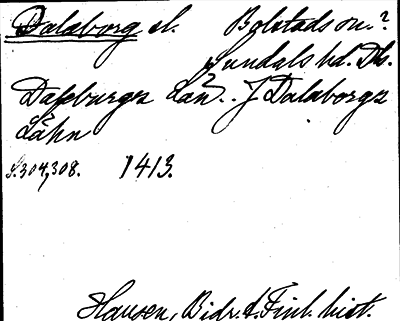 Dalaborg sl. Bolstads sn.?
Sundals hd. Ds.
Dasburgz Län.. J Dalaborgz
Låhn
S.304,308. 1413.
Hausen, Bidr. t. Finl. hist.